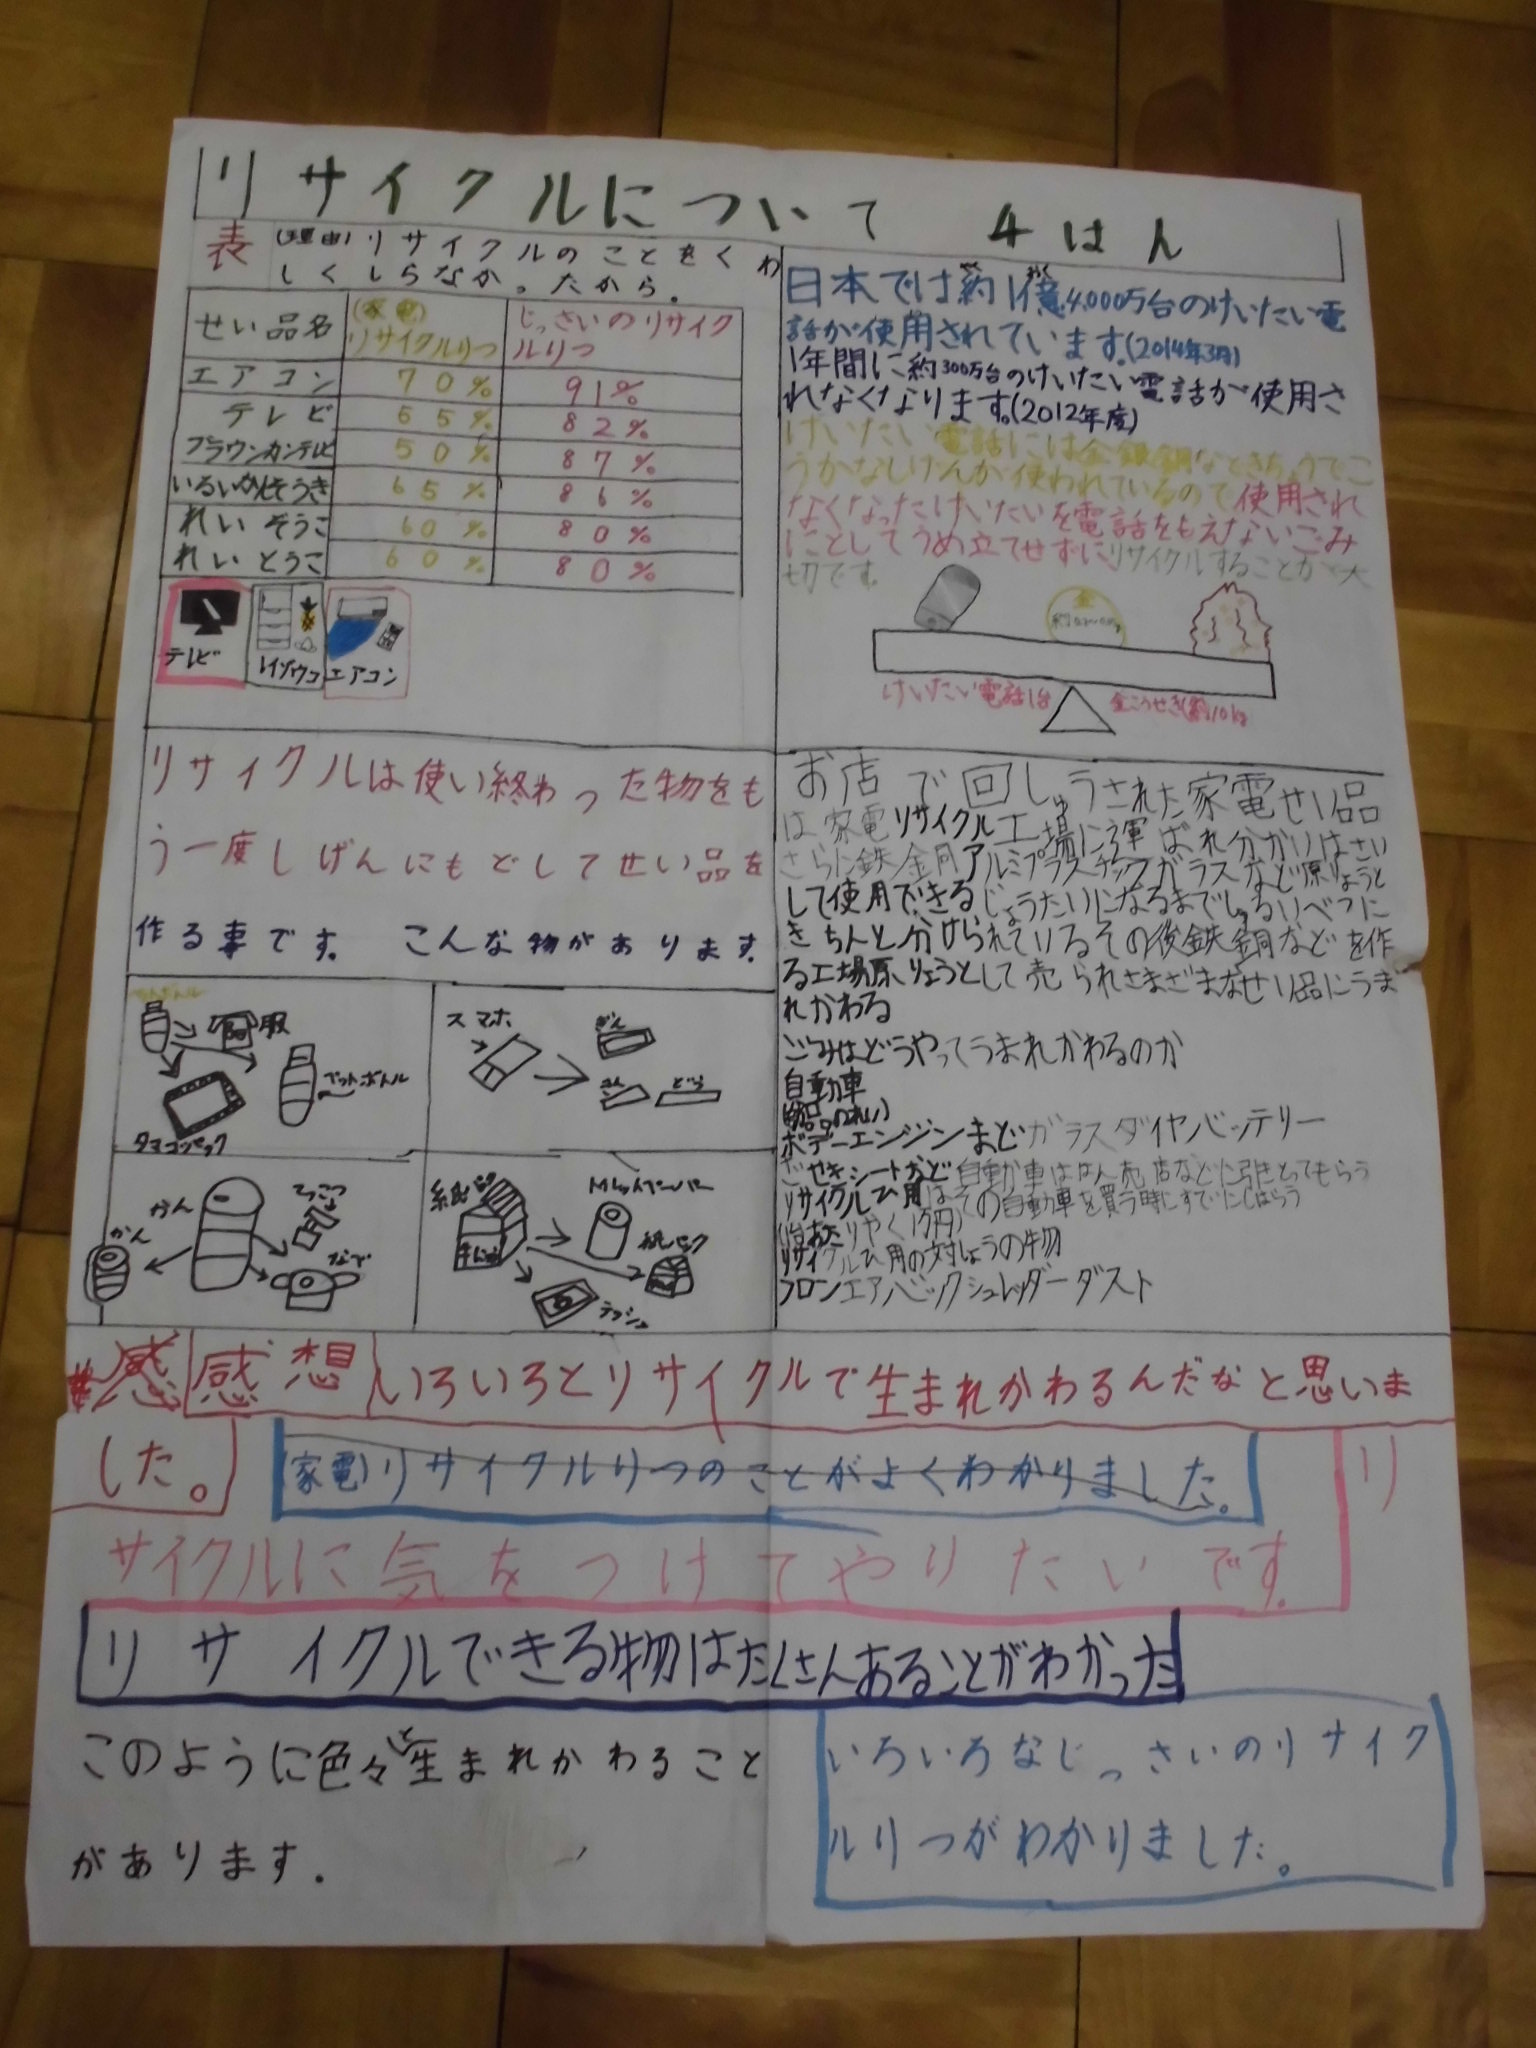 リサイクルについて 4はん
表 (理由)リサイクルのことをくわ
しくしらなかったから。
せい品名 (家電)リサイクルりつ じっさいのリサイクルりつ
エアコン 70% 91%
テレビ 55% 82%
ブラウンカンテレビ 50% 87%
いるいかんそうき 65% 86%
れいぞうこ 60% 80%
れいとうこ 60% 80%
テレビ レイゾウコ エアコン
日本では約1億4,000万台のけいたい電
話が使用されています。(2014年3月)
1年間に約300万台のけいたい電話が使用さ
れなくなります。(2012年度)
けいたい電話には金銀銅なときちょうでこ
うかなしげんが使われているので使用され
なくなったけいたいを電話をもえないごみ
にとしてうめ立てせずにリサイクルすることが大
切です。
金
けいたい電話1台 金こうせき(約)10kg
リサイクルは使い終わった物をも
う一度しげんにもどしてせい品を
作る事です。 こんな物があります。
お店で回しゅうされた家電せい品
は家電リサイクル工場に運ばれ分かりはさい
さらに鉄金同アルミプラスチックガラスなど原りょうと
して使用できるじょうたいになるまでしゅるいべつに
きちんと分けられているその後鉄銅などを作
る工場原りょうとして売られさまざまなせい品にうま
れかわる
ごみはどうやってうまれかわるのか
自動車
ボデーエンジンまどガラスダイヤバッテリー
ざせきシートなど自動か車ははん売店などに引きとってもらう
リサイクルひ用はその自動車を買う時にすでにしはらう
(1台あたりやく1万円)
リサイクルひ用の対しょうの物
フロンエアバックシュレッダーダスト
ペットボトル
服
ペットボトル
タマゴパック
スマホ
ぎん
きん
どう
かん
かん
てっこつ
なべ
紙パック
牛にゅう
トレットペーパー
紙パック
テッシュ
感想 いろいろとリサイクルで生まれかわるんだなと思いま
した。
(家電)リサイクルりつのことがよくわかりました。
リ
サイクルに気をつけてやりたいです。
リサイクルできる物はたくさんあることがわかった
このように色々と生まれかわること
があります.
いろいろなじっさいのリサイク
ルりつがわかりました。